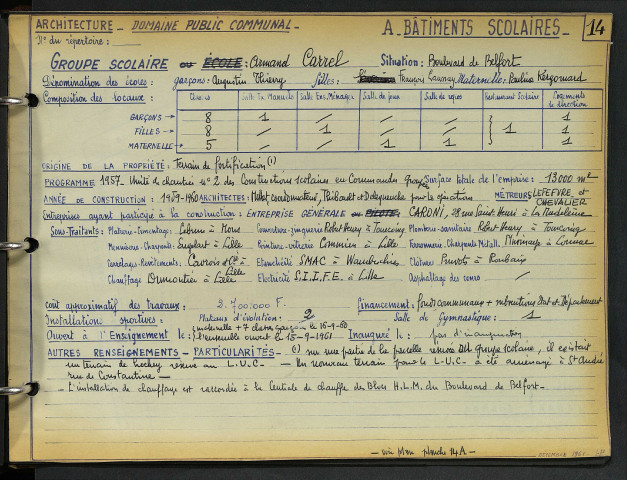 ARCHITECTURE - DOMAINE PUBLIC COMMUNAL - A - BÂTIMENTS SCOLAIRES - 14
N° du répertoire :
GROUPE SCOLAIRE ou ÉCOLE : Armand Carrel Situation : Boulevard de Belfort
Dénomination des écoles : garçons : Augustin Thierry filles : Maternelle : Pauline Kergomard
Composition des locaux :
Classes Salle Tx. Manuels Salle Ens. Ménager Salle de jeux Salle de repos Restaurant Scolaire Logements de direction
GARÇONS → 8 1 / / / 1
FILLES → 8 / / / / 1 1
MATERNELLE → 5 / / 1 1 1
ORIGINE DE LA PROPRIÉTÉ : Terrain de fortification (1)
PROGRAMME 1957 - Unité de chantier n° 2 des Constructions scolaires en Commandes groupées Surface totale de l'emprise : 13000 m²
ANNÉE DE CONSTRUCTION : 1959-1960 ARCHITECTES : Maillet coordonnateur, Thibault et pour l'exécution MÉTREURS LEFEFVRE et CHEVALIER
Entreprises ayant participé à la construction : ENTREPRISE GÉNÉRALE ou PILOTE : CARONI, 28 rue Saint Henri à La Madeleine
Sous-Traitants : Plâtrerie-Cimentage : Lebrun à Mons Couverture-zinguerie Robert Henry à Tourcoing Plomberie-sanitaire Robert Henry à Tourcoing
Menuiserie-Charpente : Englart à Lille Peinture-vitrerie à Lille Ferronnerie-Charpente Métall. à Lomme
Carrelages-Revêtements : Cavrois et Cie à Lille Etanchéité SMAC à Wambrechies Clôtures Pruvots à Roubaix
Chauffage Ormoutier à Lille Electricité S.I.I.F.E. à Lille Asphaltage des cours /
coût approximatif des travaux : 2.700.000 F. Financement : fonds communaux + subventions Etat et Département
Installations sportives : Plateaux d'évolution : 2 Salle de Gymnastique : 1
Ouvert à l'Enseignement le : maternelle + 7 classes garçons le 16-9-60 l'ensemble ouvert le 15-9-1961 Inauguré le : pas d'inauguration
AUTRES RENSEIGNEMENTS - PARTICULARITÉS - (1) sur une partie de la parcelle réservée au groupe scolaire, il existait
un terrain de hockey réservé au L.U.C. - Un nouveau terrain pour le L.U.C. a été aménagé à St André
rue de Constantine -
- L'installation de chauffage est raccordée à la Centrale de chauffe des Blocs H.L.M. du Boulevard de Belfort -
- voir plan planche 14A -
DÉCEMBRE 1961